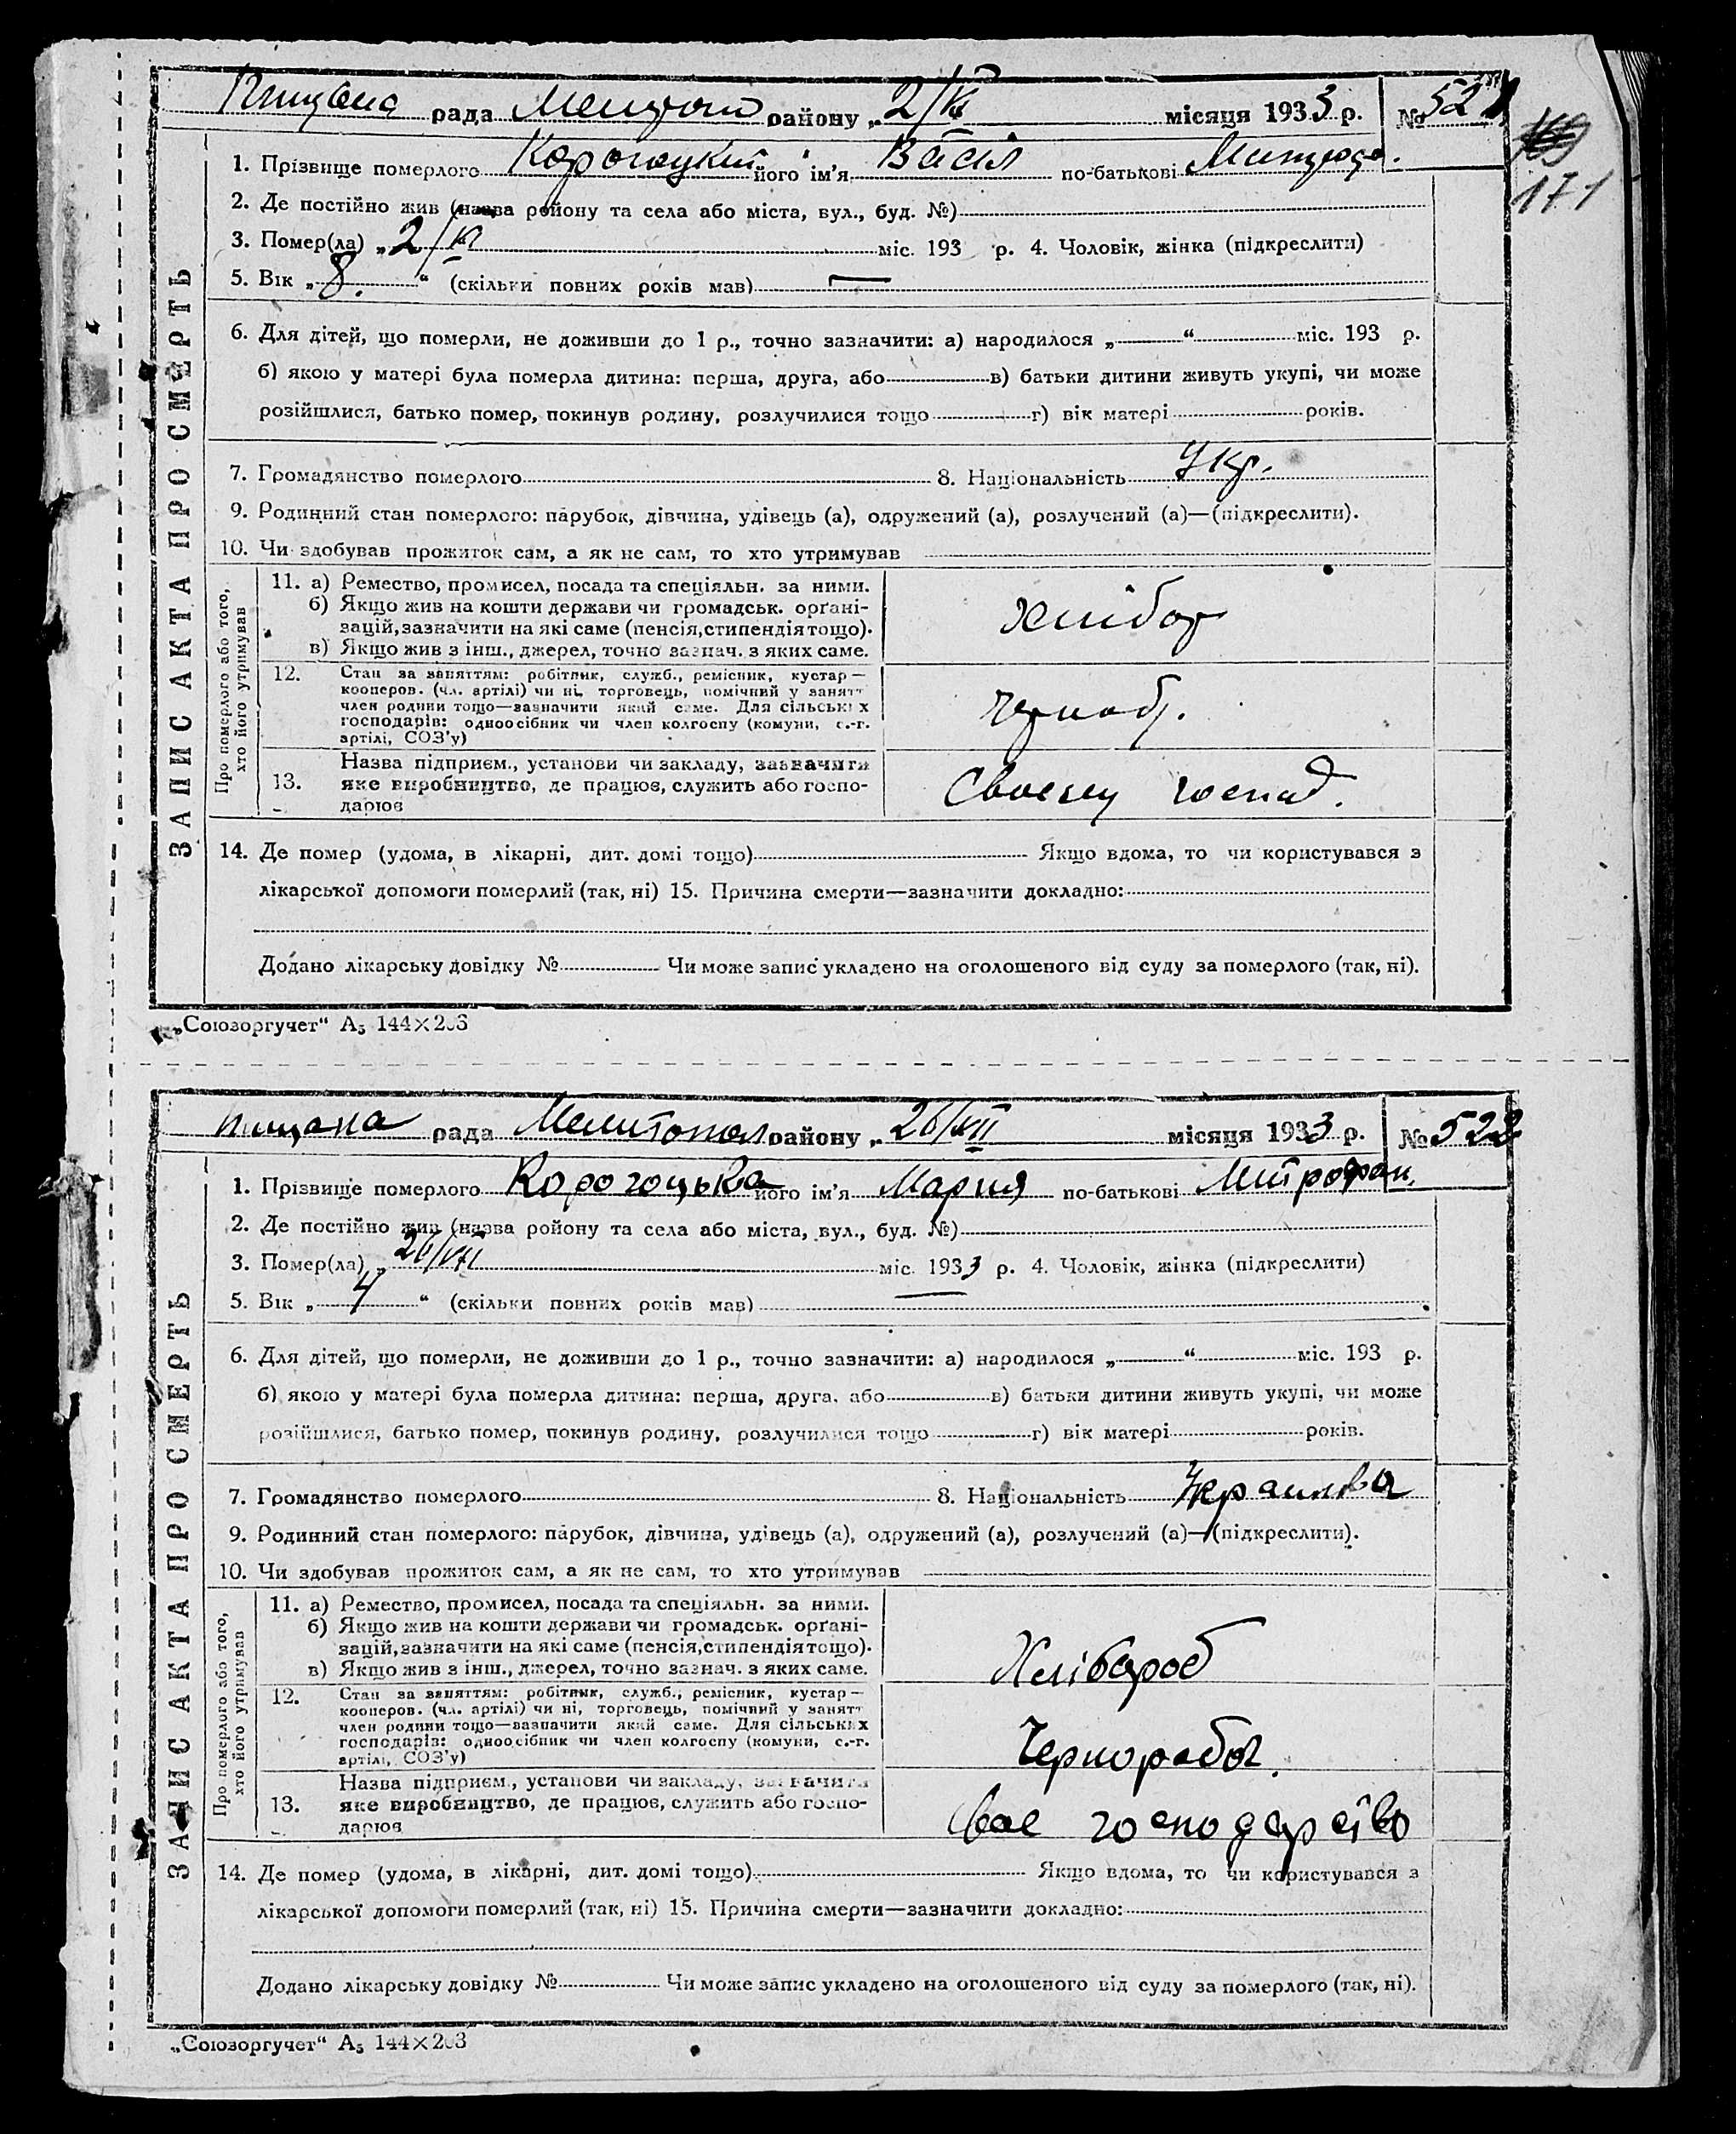 рада Мелитоп району „2/VI місяця 1933 р. № 521
171
1. Прізвище померлого Корогоцкий його ім'я Васіл по-батькові
2. Де постійно жив (назва району та села або міста, вул., буд. №)
3. Помер(ла) „2/VI міс. 193 р. 4. Чоловік, жінка (підкреслити)
5. Вік „8.“ (скільки повних років мав)
6. Для дітей, що померли, не доживши до 1 р., точно зазначити: а) народилося „ “ міс. 193 р.
б) якою у матері була померла дитина: перша, друга, або в) батьки дитини живуть укупі, чи може
розійшлися, батько помер, покинув родину, розлучилися тощо г) вік матері років.
7. Громадянство померлого 8. Національність Укр.
9. Родинний стан померлого: парубок, дівчина, удівець (а), одружений (а), розлучений (а)—(підкреслити).
10. Чи здобував прожиток сам, а як не сам, то хто утримував
ЗАПИС АКТА ПРО СМЕРТЬ
Про померлого або того, хто його утримував
11. а) Ремество, промисел, посада та спеціяльн. за ними.
б) Якщо жив на кошти держави чи громадськ. орґані-
зацій, зазначити на які саме (пенсія, стипендія тощо).
в) Якщо жив з інш., джерел, точно зазнач. з яких саме.
Хлібор
12. Стан за заняттям: робітник, служб., ремісник, кустар—
кооперов. (чл. артілі) чи ні, торговець, помічний у занятт
член родини тощо—зазначити який саме. Для сільських
господарів: одноосібник чи член колгоспу (комуни, с.-г.
артілі, СОЗ'у)
Чернаб.
Назва підприєм., установи чи закладу, зазначити
13. яке виробництво, де працює, служить або госпо-
дарює
Своєму господ.
14. Де помер (удома, в лікарні, дит. домі тощо) Якщо вдома, то чи користувався з
лікарської допомоги померлий (так, ні) 15. Причина смерти—зазначити докладно:
Додано лікарську довідку № Чи може запис укладено на оголошеного від суду за померлого (так, ні).
„Союзоргучет“ А5 144×203
Піщана рада Мелитопол району „26/VII місяця 1933 р. № 522
1. Прізвище померлого Корогоцька його ім'я Мария по-батькові Митрофан.
2. Де постійно жив (назва району та села або міста, вул., буд. №)
3. Помер(ла) „26/VII міс. 1933 р. 4. Чоловік, жінка (підкреслити)
5. Вік „4“ (скільки повних років мав)
6. Для дітей, що померли, не доживши до 1 р., точно зазначити: а) народилося „ “ міс. 193 р.
б) якою у матері була померла дитина: перша, друга, або в) батьки дитини живуть укупі, чи може
розійшлися, батько помер, покинув родину, розлучилися тощо г) вік матері років.
7. Громадянство померлого 8. Національність Украинка
9. Родинний стан померлого: парубок, дівчина, удівець (а), одружений (а), розлучений (а)—(підкреслити).
10. Чи здобував прожиток сам, а як не сам, то хто утримував
ЗАПИС АКТА ПРО СМЕРТЬ
Про померлого або того, хто його утримував
11. а) Ремество, промисел, посада та спеціяльн. за ними.
б) Якщо жив на кошти держави чи громадськ. орґані-
зацій, зазначити на які саме (пенсія, стипендія тощо).
в) Якщо жив з інш., джерел, точно зазнач. з яких саме.
Хлібороб
12. Стан за заняттям: робітник, служб., ремісник, кустар—
кооперов. (чл. артілі) чи ні, торговець, помічний у занятт
член родини тощо—зазначити який саме. Для сільських
господарів: одноосібник чи член колгоспу (комуни, с.-г.
артілі, СОЗ'у)
Чернорабоч.
Назва підприєм., установи чи закладу, зазначити
13. яке виробництво, де працює, служить або госпо-
дарює
своє господарство
14. Де помер (удома, в лікарні, дит. домі тощо) Якщо вдома, то чи користувався з
лікарської допомоги померлий (так, ні) 15. Причина смерти—зазначити докладно:
Додано лікарську довідку № Чи може запис укладено на оголошеного від суду за померлого (так, ні).
„Союзоргучет“ А5 144×203